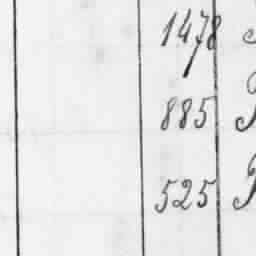 1478
885
525